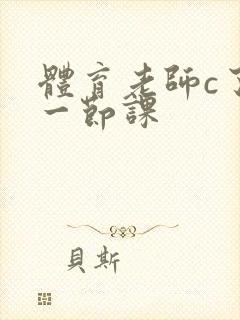 體育老師c了
一節課
貝斯